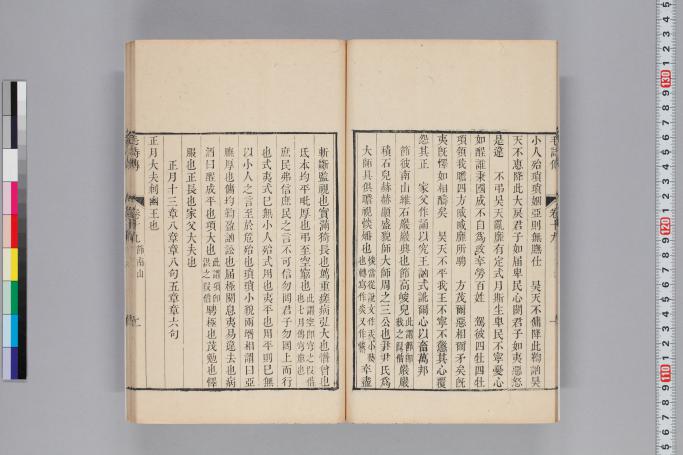 小人殆瑣瑣姻亞則無膴仕　昊天不傭降此鞠訩昊
天不惠降此大戾君子如屆卑民心闋君子如夷惡怒
是違　不弔昊天亂靡有定式月斯生卑民不寧憂心
如酲誰秉國成不自為政卒勞百姓　駕彼四牡四牡
項領我瞻四方蹙蹙靡所騁　方茂爾惡相爾矛矣旣
夷旣懌如相醻矣　昊天不平我王不寧不懲其心覆
怨其正　家父作誦以究王訩式訛爾心以畜萬邦
節彼南山維石巖巖興也節高峻皃
巖巖
積石皃赫赫顯盛皃師大師周之三公也尹尹氏爲
大師具俱瞻視惔燔也
卒盡
斬斷監視也實滿猗長也薦重瘥病弘大也憯曾也
氐本均平毗厚也弔至空窮也
庶民弗信庶民之言不可信勿罔君子勿罔上而行
也式夷式已無小人殆式用也夷平也用平則已無
以小人之言至於危殆也瑣瑣小貌兩壻相謂曰亞
膴厚也傭均鞠盈訩訟也屆極闋息夷易違去也病
酒曰酲成平也項大也
騁極也茂勉也懌
服也正長也家父大夫也
正月十三章八章章八句五章章六句
正月大夫刺幽王也